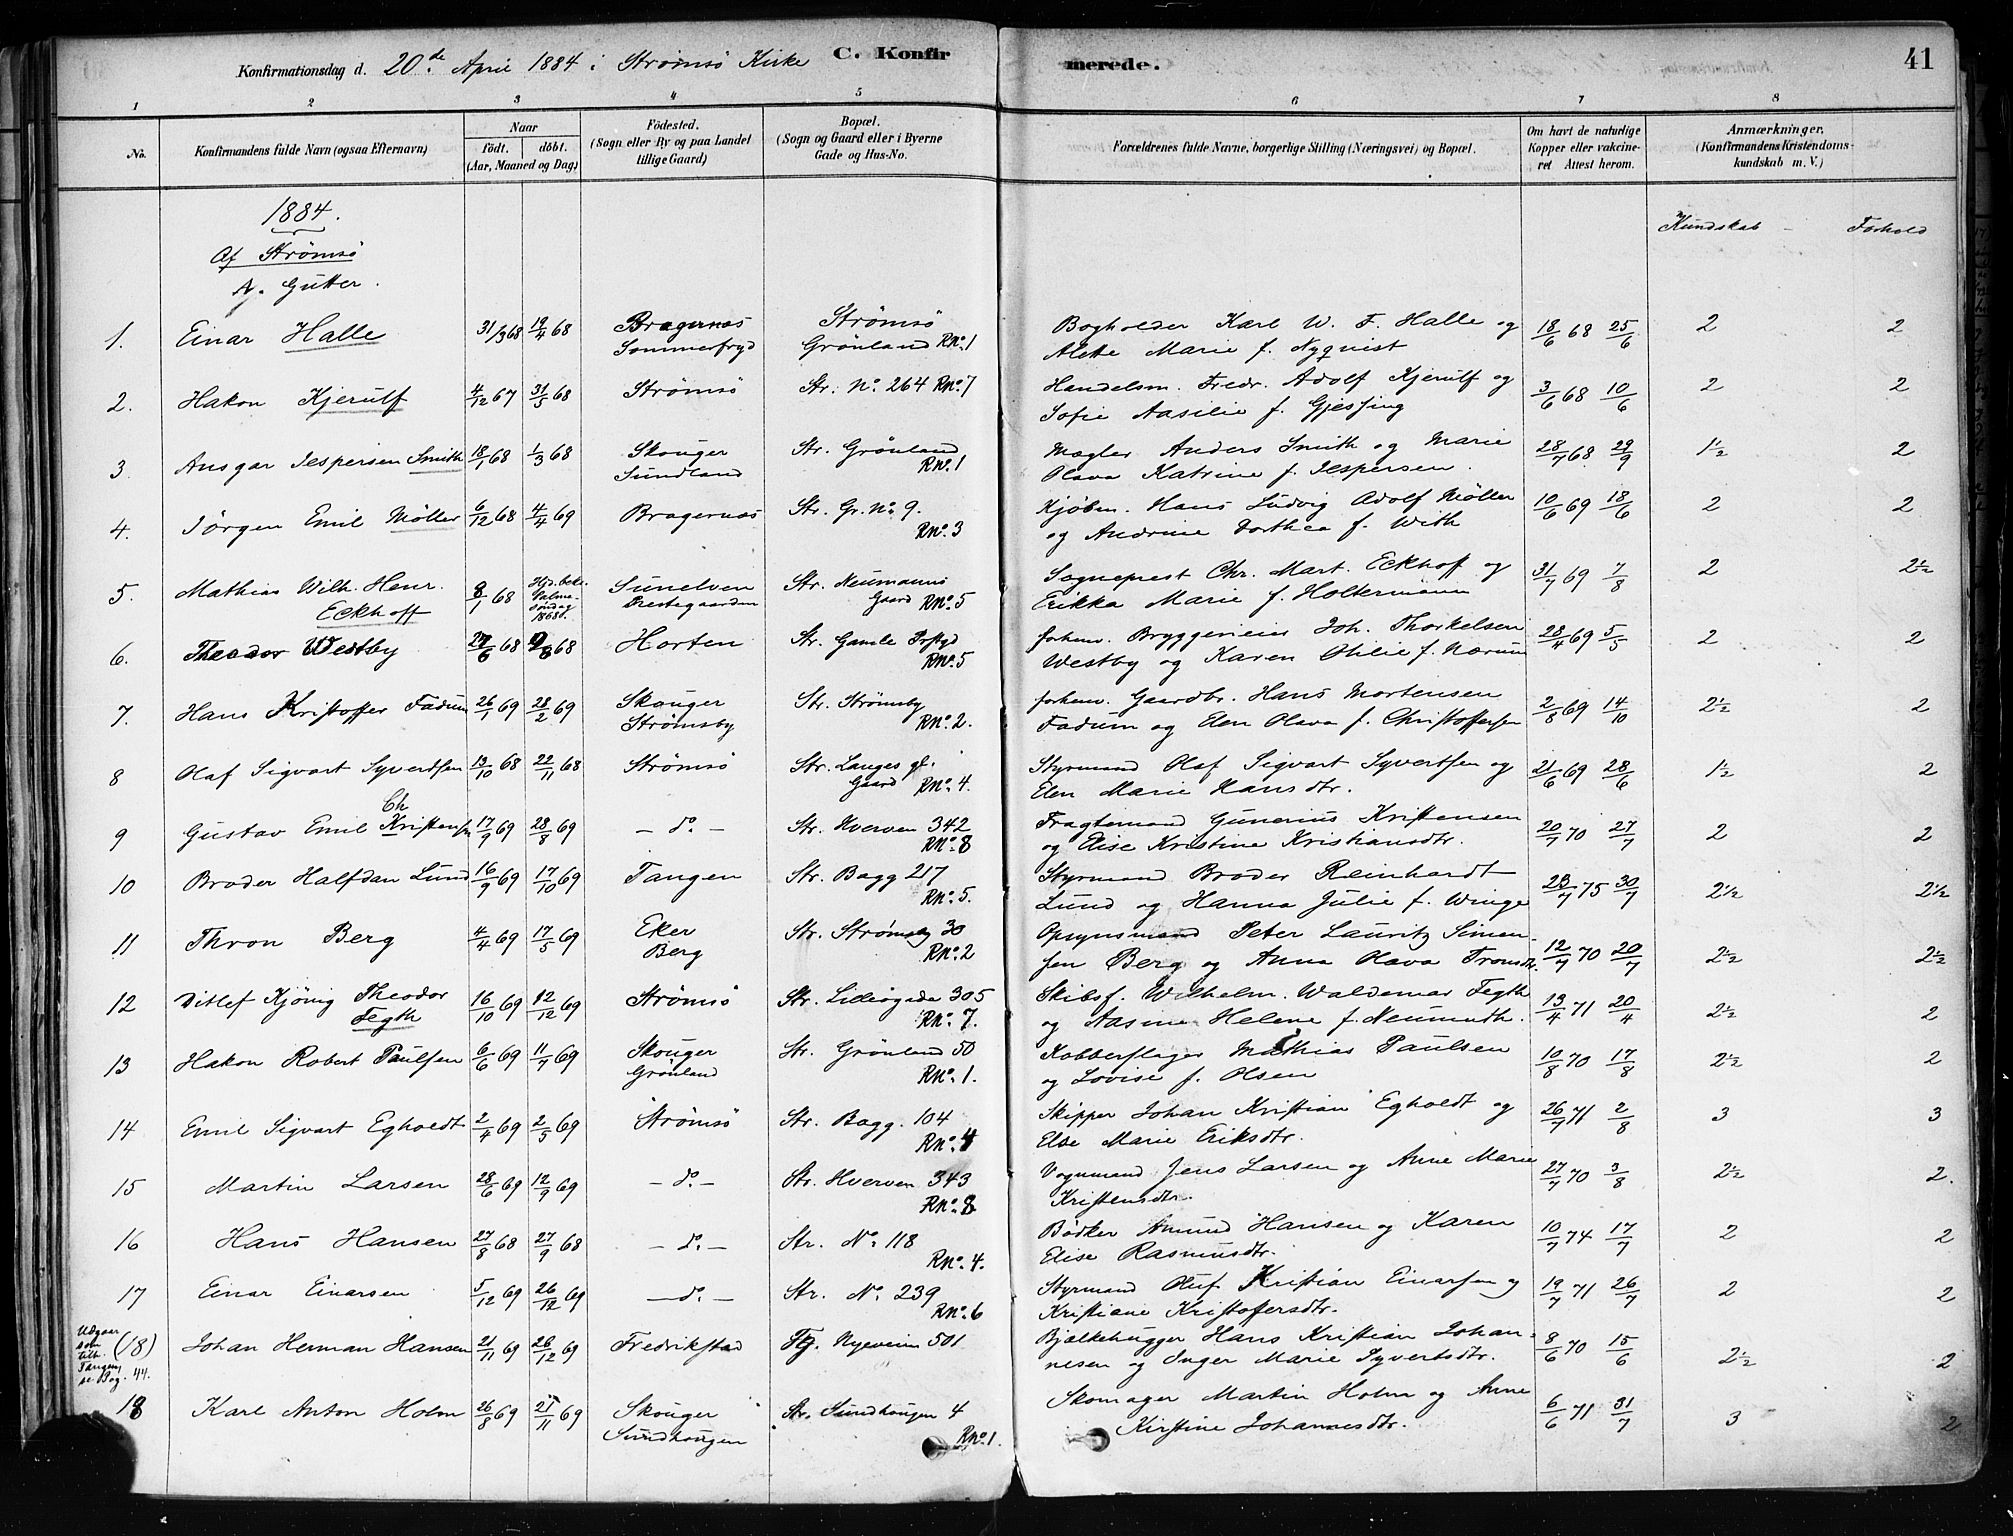 Konfirmationsdag d. 20de April 1884 i Strømsø Kirke C. Konfirmerede. 41
1 2 3 4 5 6 7 8
No. Konfirmandens fulde Navn (ogsaa Efternavn) Naar födt. döbt. (Aar, Maaned og Dag) Födested. (Sogn eller By og paa Landet tillige Gaard) Bopæl. (Sogn og Gaard eller i Byerne Gade og Hus-No. Forældrenes fulde Navne, borgerlige Stilling (Næringsvei) og Bopæl. Om havt de naturlige Kopper eller vakcineret Attest herom. Anmærkninger. (Konfirmandens Kristendomskundskab m. V.)
1884. Kundskab - Forhold
Af Strømsø
A. Gutter.
1. Einar Halle 31/3 68 19/4 68 Bragernæs Strømsø Bogholder Karl W. F. Halle og 18/6 68 25/6 2 2
Sommerfryd Grønland RNo. 1 Alette Marie f. Nyquist
2. Hakon Kjerulf 4/12 67 31/5 68 Strømsø Str. No. 264 RNo. 7 Handelsm. Fredr. Adolf Kjerulf og 3/6 68 10/6 2 2
Sofie Aasilie f. Gjessing
3. Ansgar Jespersen Smith 18/1 68 1/3 68 Skouger Str. Grønland Mægler Anders Smith og Marie 28/7 68 29/9 1½ 2
Sundland RNo. 1 Olava Katrine f. Jespersen.
4. Jörgen Emil Möller 6/12 68 4/4 69 Bragernæs Str. Gr. No. 9. Kjøbm. Hans Ludvig Adolf Möller 10/6 69 18/6 2 2
RNo. 3 og Andrine Dorthea f. With
5. Mathias Wilh. Henr. 8/1 68 Hjd. bekr. Palmesöndag 1868. Sunelven Str. Neumanns Sogneprest Chr. Mart. Eckhoff og 31/7 69 7/8 2 2½
Eckhoff Prestegaarden Gaard RNo. 5 Erikka Marie f. Holtermann
6. Theodor Westby 27/6 68 9/8 68 Horten Str. Gamle Prstgd forhenv. Bryggerieier Joh. Thorkelsen 28/4 69 5/5 2 2
RNo. 5 Westby og Karen Otilie f. Nærum
7. Hans Kristoffer Fadum 26/1 69 28/2 69 Skouger Str. Strømsby forhenv. Gaardbr. Hans Mortensen 2/8 69 14/10 2½ 2
Strømsby RNo. 2. Fadum og Elen Olava f. Christoffersen
8 Olaf Sigvart Syvertsen 13/10 68 22/11 68 Strømsø Str. Langes gf. Styrmand Olaf Sigvart Syvertsen og 21/6 69 28/6 1½ 2
Gaard RNo. 4. Elen Marie Hansdtr.
Ch
9 Gustav Emil Kristensen 17/9 69 28/8 69 - do. - Str. Hverven 342 Fragtemand Gunerius Kristensen 20/7 70 27/7 2 2
RNo. 8 og Elise Kristine Kristiansdtr.
10 Broder Halfdan Lund 16/9 69 17/10 69 Tangen Str. Bagg 217 Styrmand Broder Reinhardt 23/7 75 30/7 2½ 2½
RNo. 5. Lund og Hanna Julie f. Winge
11 Thron Berg 4/4 69 17/5 69 Eker Str. Strømsby 30 Opsynsmand Peter Lauritz Simen- 12/7 70 20/7 2½ 2½
Berg RNo. 2 sen Berg og Anna Olava Tronsdtr.
12 Ditlef Kjönig Theodor 16/10 69 12/12 69 Strømsø Str. Lilleögade 305 Skibsf. Wilhelm Waldemar Fegth 13/4 71 20/4 2½ 2
Fegth RNo. 7. og Aasine Helene f. Neumuth.
13 Hakon Robert Paulsen 6/6 69 11/7 69 Skouger Str. Grønland 50 Kobberslager Mathias Paulsen 10/8 70 17/8 2½ 2
Grønland RNo. 1. og Lovise f. Olsen
14 Emil Sigvart Egholdt 2/4 69 2/5 69 Strømsø Str. Bagg. 104 Skipper Johan Kristian Egholdt og 26/7 71 2/8 3 3
RNo. 4 Else Marie Eriksdtr.
15 Martin Larsen 28/6 69 12/9 69 - do. - Str. Hverven 343 Vognmand Jens Larsen og Anne Marie 27/7 70 3/8 2½ 2.
RNo. 8 Kristensdtr.
16 Hans Hansen 27/8 68 27/9 68 - do. - Str. No. 118 Bödker Amund Hansen og Karen 10/7 74 17/7 2 2
RNo. 4. Elise Rasmusdtr.
17 Einar Einarsen 5/12 69 26/12 69 - do. - Str. No. 239 Styrmand Oluf Kristian Einarsen og 19/7 71 26/7 2 2
RNo. 6 Kristiane Kristoffersdtr.
Udgaar som tilh. Tangen se Pag. 44. (18) Johan Herman Hansen 21/11 69 26/12 69 Fredrikstad Tg. Nyeveien 501 Bjælkehugger Hans Kristian Johan- 8/6 70 15/6 2½ 2
nesen og Inger Marie Syvertsdtr.
18 Karl Anton Holm 26/8 69 21/11 69 Skouger Str. Sundhougen 4 Skomager Martin Holm og Anne 6/6 71 31/7 3 2
Sundhougen RNo. 1. Kirstine Johannesdtr.